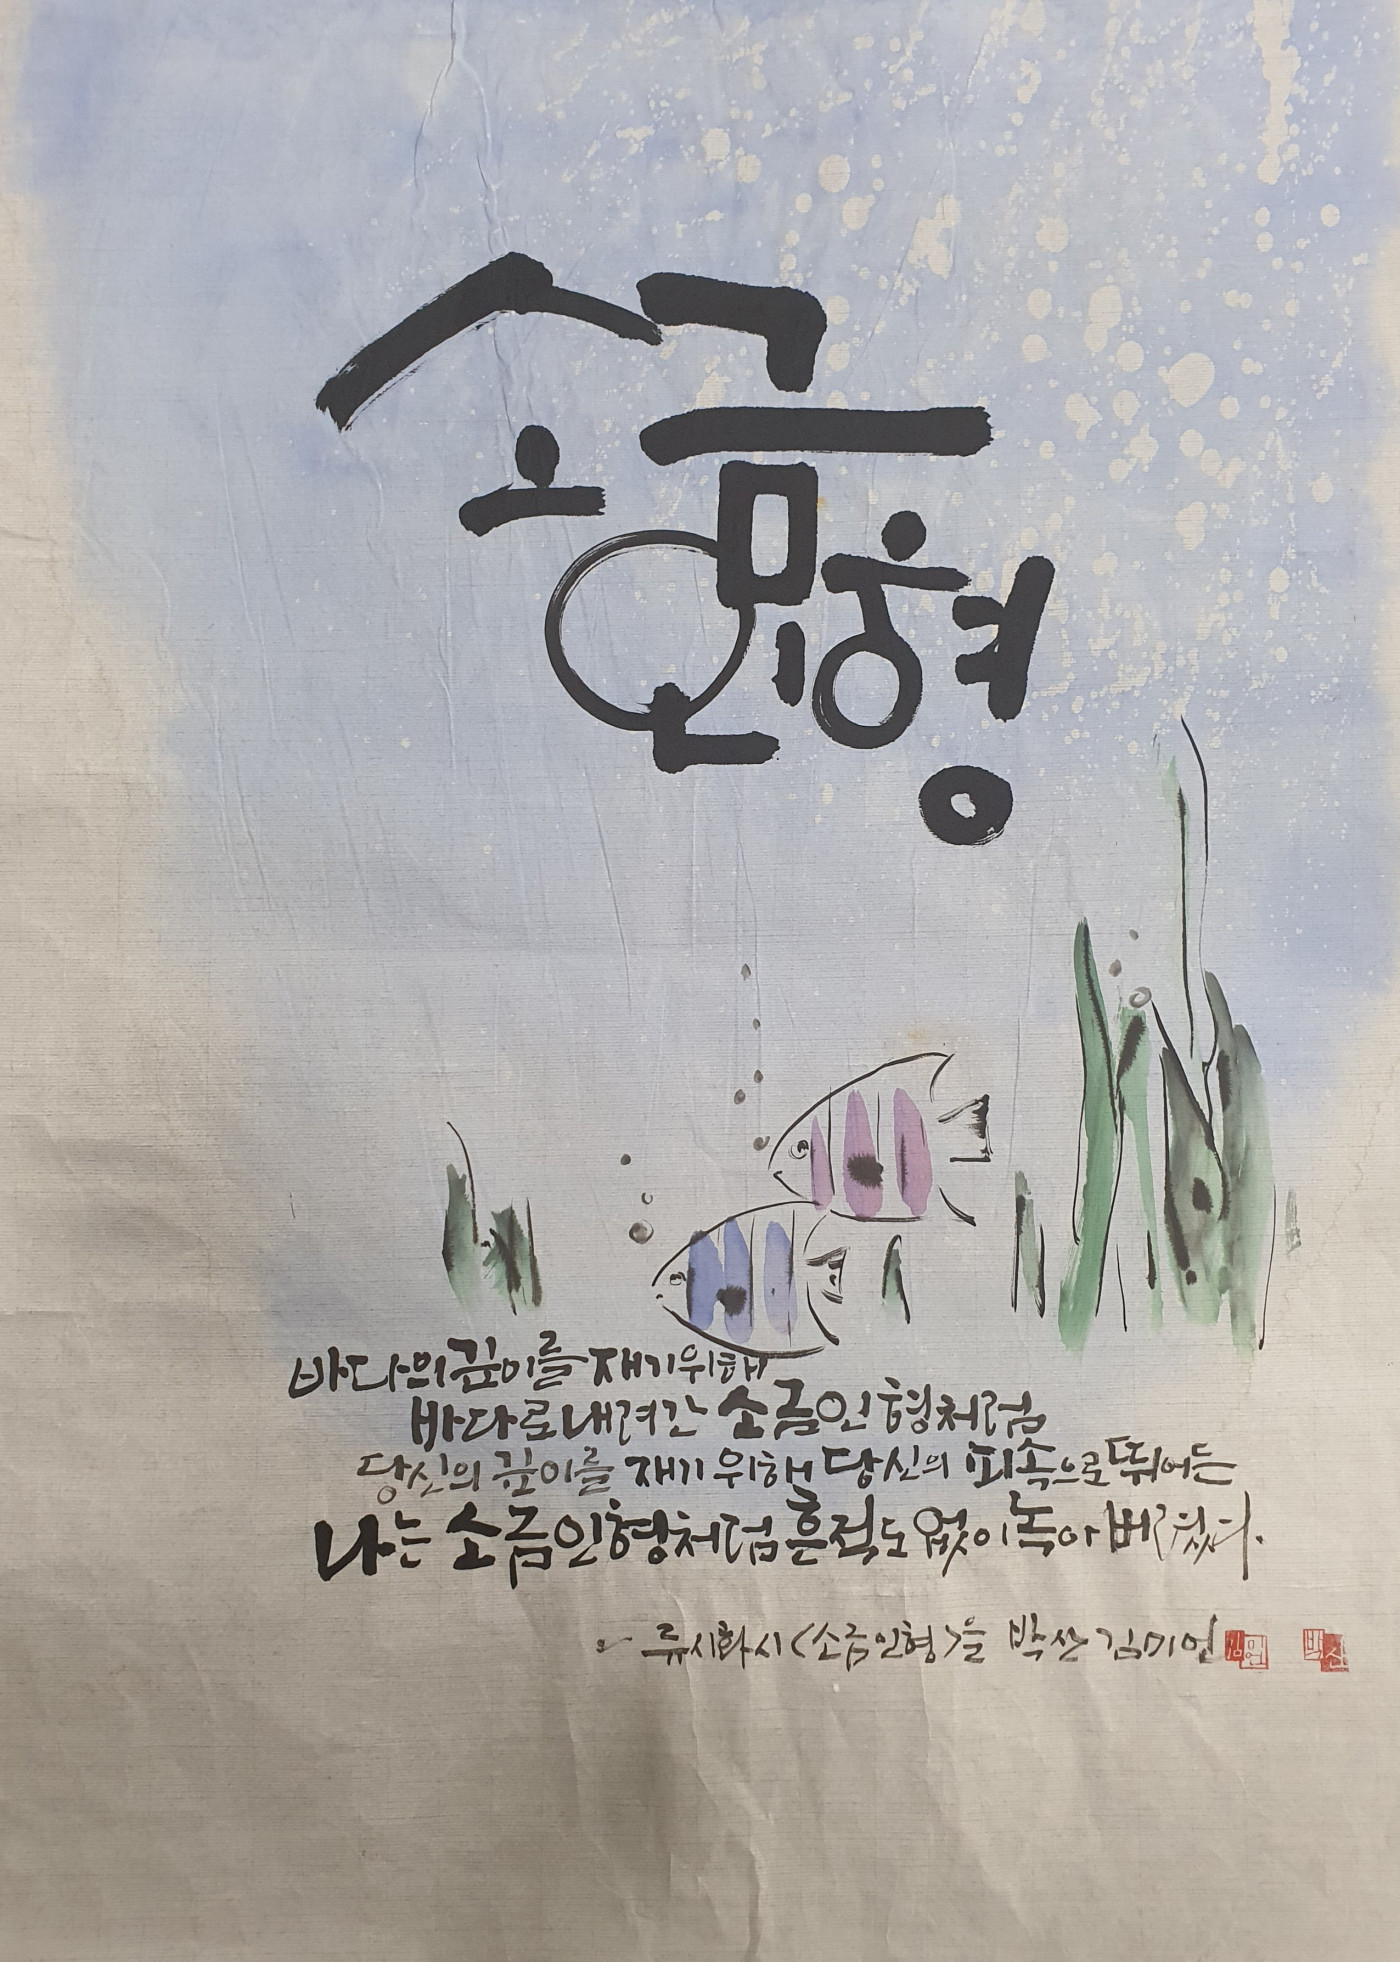 소금
인형
바다의 깊이를 재기 위해
바다로 내려간 소금인형처럼
당신의 깊이를 재기 위해 당신의 피 속으로 뛰어든
나는 소금인형처럼 흔적도 없이 녹아 버렸네.
류시화 시 <소금인형>을 박산 김미연